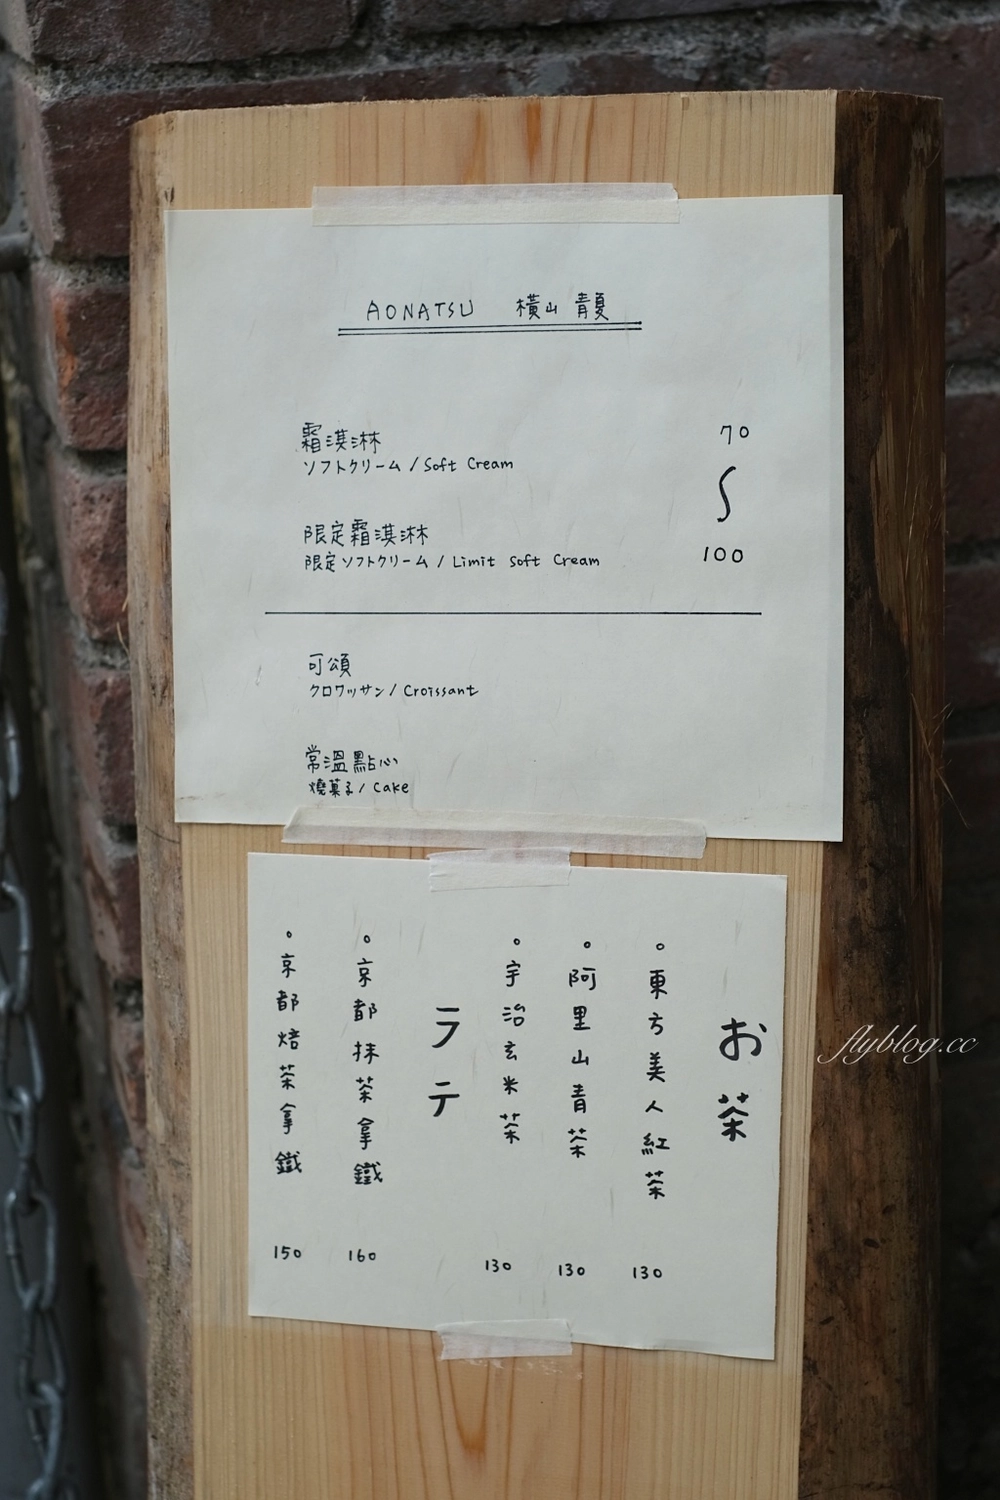 AONATSU 橫山 青夏
霜淇淋
ソフトクリーム / Soft Cream
70
∫
限定霜淇淋
限定ソフトクリーム / Limit Soft Cream
100
可頌
クロワッサン / Croissant
常溫點心
燒菓子 / Cake
お茶
。東方美人紅茶 130
。阿里山青茶 130
。宇治玄米茶 130
ラテ
。京都抹茶拿鐵 160
。京都焙茶拿鐵 150
flyblog.cc